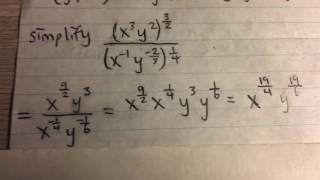 simplify (x³y²)^(3/2) / (x⁻¹y^(-2/3))^(1/4)
= x^(9/2)y³ / x^(-1/4)y^(-1/6) = x^(9/2)x^(1/4)y³y^(1/6) = x^(19/4)y^(19/6)